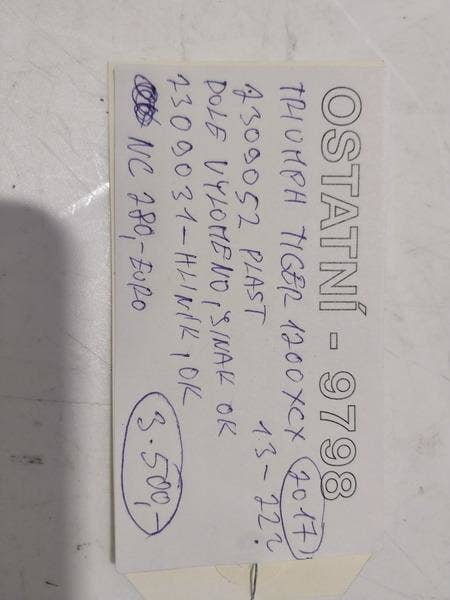 OSTATNÍ - 9798
TRIUMPH TIGER 1200 XCX 2017
2309052 PLAST 13-22?
DOLE VYLOMENO, JINAK OK
2309031-HLINÍK, OK
NC 780,-EURO 3.500,-